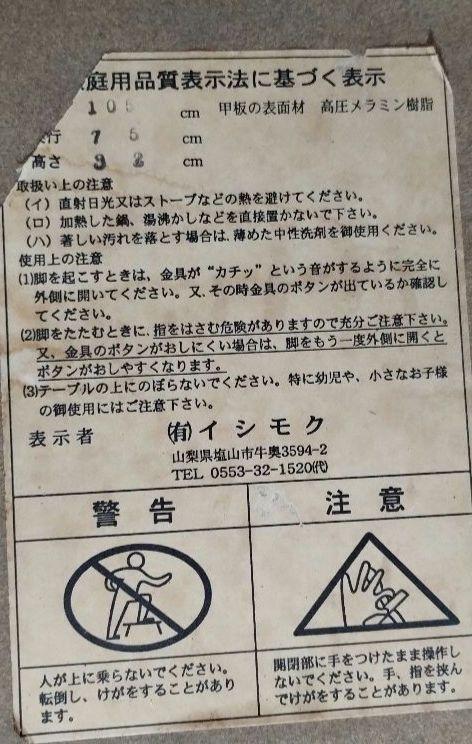 庭用品質表示法に基づく表示
105 cm 甲板の表面材 高圧メラミン樹脂
行 75 cm
高さ 32 cm
取扱い上の注意
(イ) 直射日光又はストーブなどの熱を避けてください。
(ロ) 加熱した鍋、湯沸かしなどを直接置かないで下さい。
(ハ) 著しい汚れを落とす場合は、薄めた中性洗剤を御使用ください。
使用上の注意
(1)脚を起こすときは、金具が“カチッ”という音がするように完全に
外側に開いてください。又、その時金具のボタンが出ているか確認し
てください。
(2)脚をたたむときに、指をはさむ危険がありますので充分ご注意下さい。
又、金具のボタンがおしにくい場合は、脚をもう一度外側に開くと
ボタンがおしやすくなります。
(3)テーブルの上にのぼらないでください。特に幼児や、小さなお子様
の御使用にはご注意下さい。
表示者 ㈲イシモク
山梨県塩山市牛奥3594-2
TEL 0553-32-1520㈹
警告
人が上に乗らないでください。
転倒し、けがをすることがあり
ます。
注意
開閉部に手をつけたまま操作し
ないでください。手、指を挟ん
でけがをすることがあります。